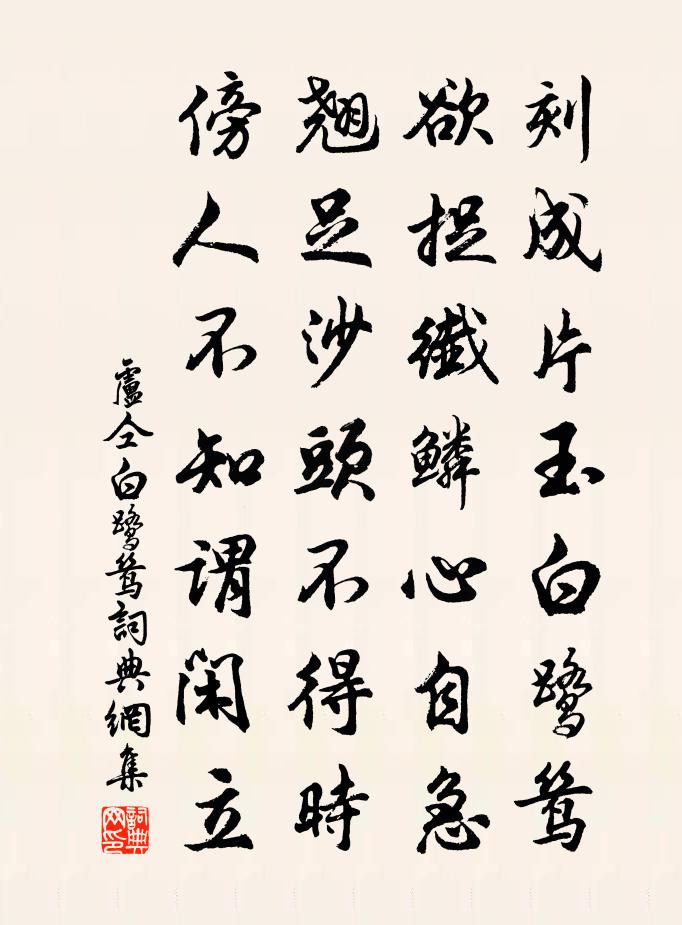 刻成片玉白鹭鸶
欲捉纖鳞心自急
翘足沙頭不得時
傍人不知谓闲立
盧仝白鹭鸶詞典網集
詞典網印